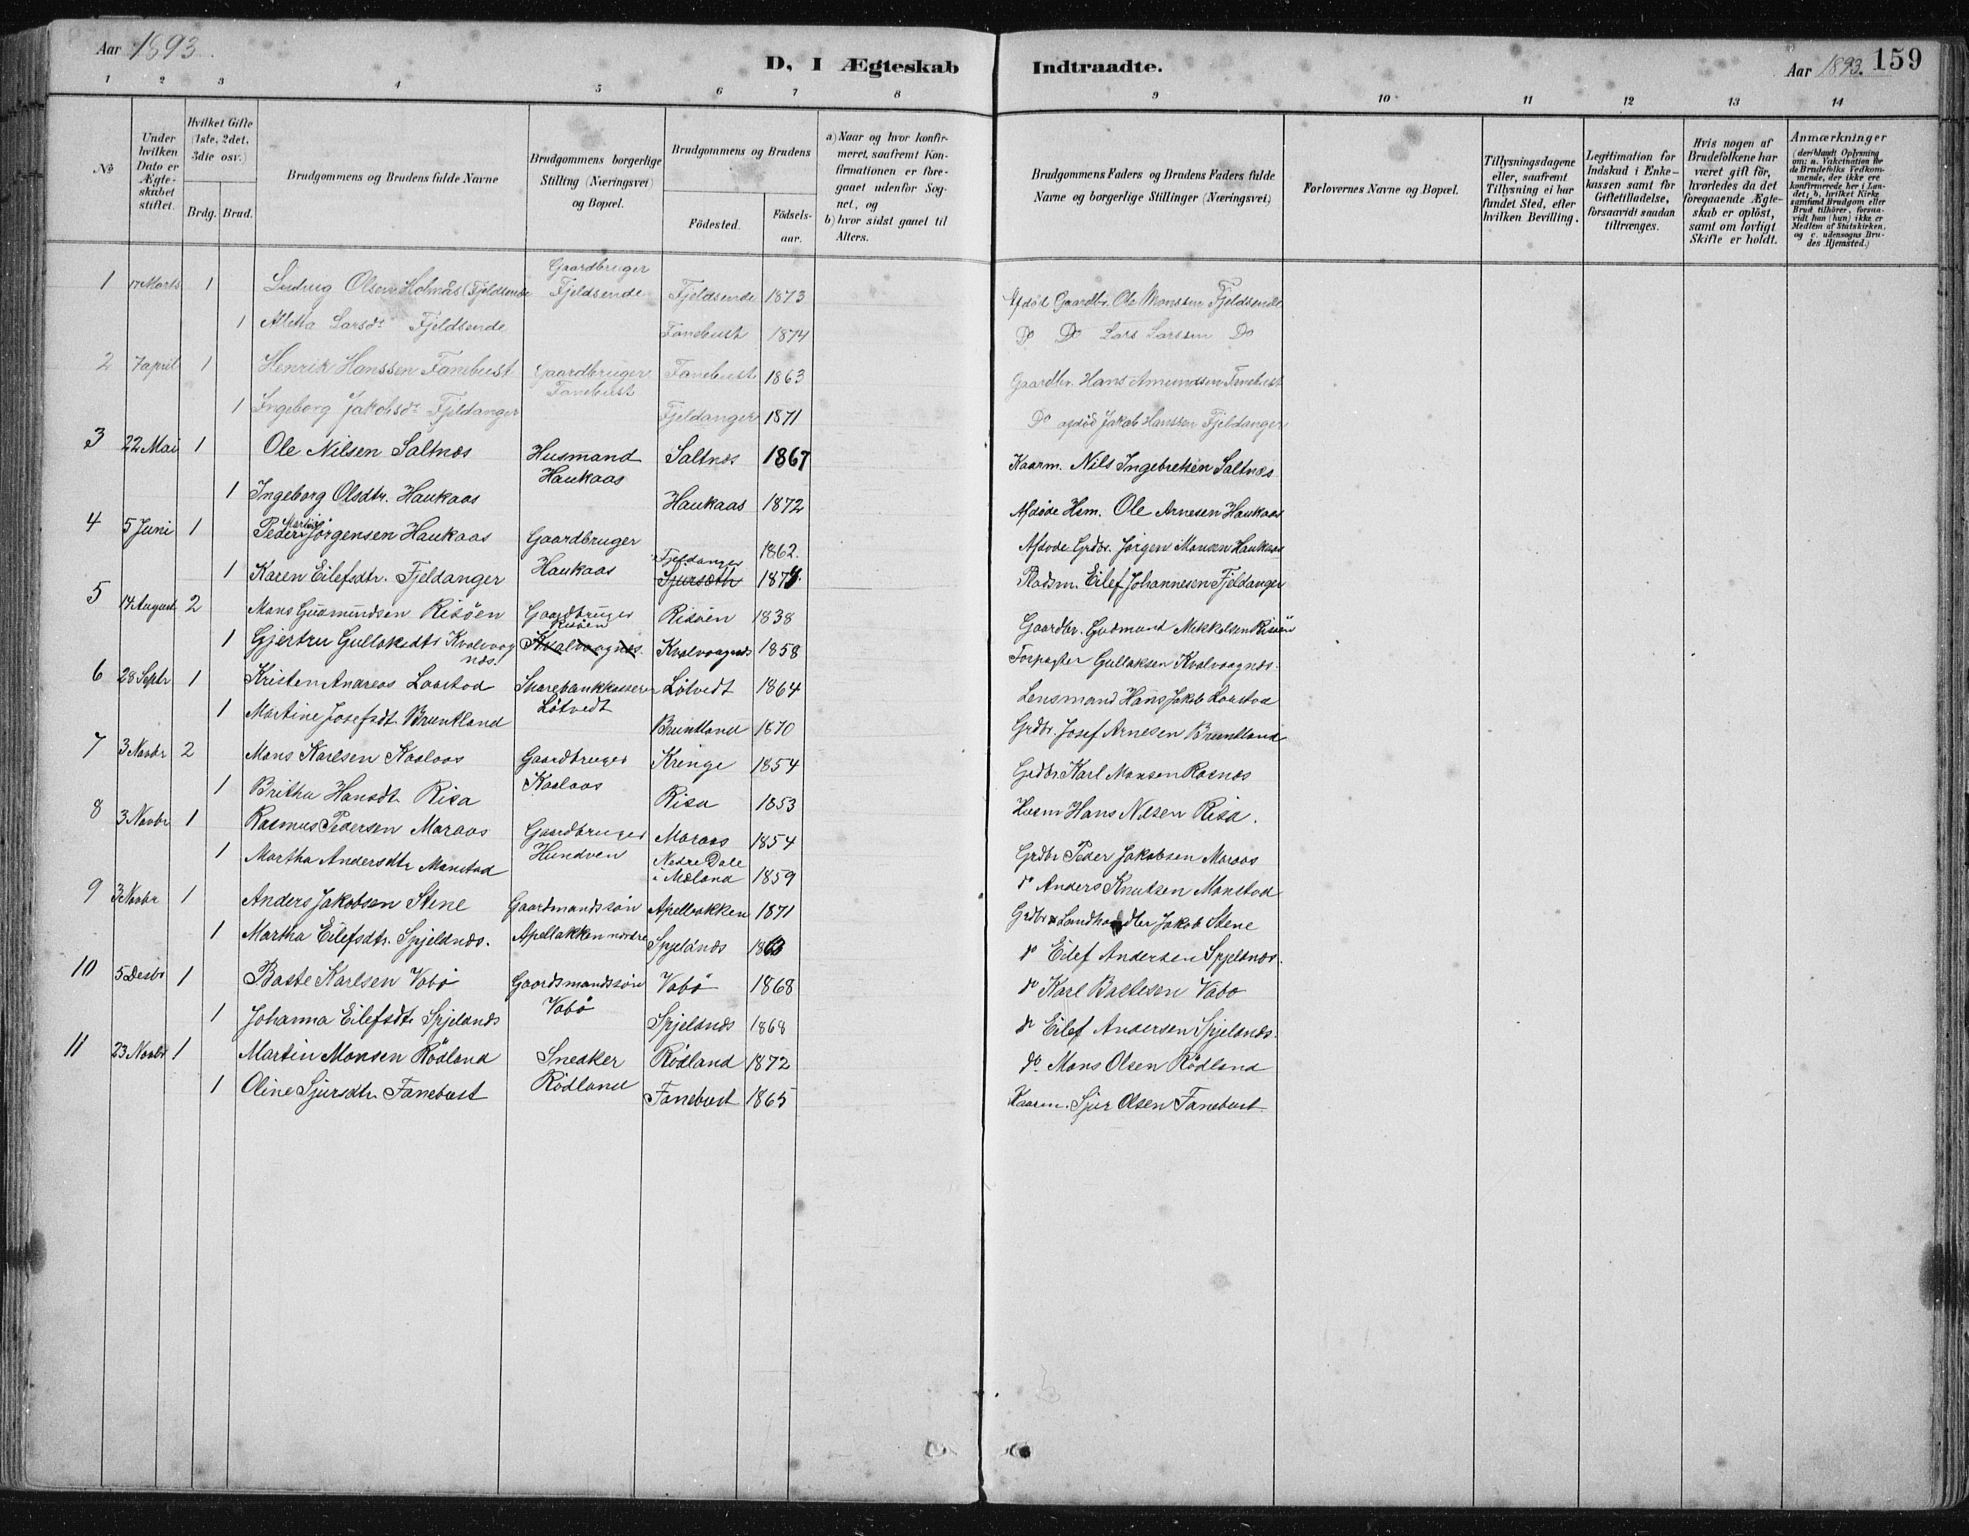 Aar 1893.
D, I Ægteskab Indtraadte.
Aar 1893. 159
1 2 3 4 5 6 7 8 9 10 11 12 13 14
No
Under hvilken Dato er Ægteskabet stiftet.
Hvilket Gifte (1ste, 2det, 3die osv.)
Brdg. Brud.
Brudgommens og Brudens fulde Navne
Brudgommens borgerlige Stilling (Næringsvei) og Bopæl.
Brudgommens og Brudens
Födested. Födselsaar.
a) Naar og hvor konfirmeret, saafremt Konfirmationen er foregaaet udenfor Sognet, og
b) hvor sidst gaaet til Alters.
Brudgommens Faders og Brudens Faders fulde Navne og borgerlige Stillinger (Næringsvei)
Forlovernes Navne og Bopæl.
Tillysningsdagene eller, saafremt Tillysning ei har fundet Sted, efter hvilken Bevilling.
Legitimation for Indskud i Enkekassen samt for Giftetilladelse, forsaavidt saadan tiltrænges.
Hvis nogen af Brudefolkene har været gift för, hvorledes da det foregaaende Ægteskab er oplöst, samt om lovligt Skifte er holdt.
Anmærkninger (deriblandt Oplysning om: a. Vakcination for de Brudefolks Vedkommende, der ikke ere konfirmerede her i Landet; b. hvilket Kirkesamfund Brudgom eller Brud tilhörer, forsaavidt han (hun) ikke er Medlem af Statskirken, og c. udensogns Brudes Hjemsted.)
1 17 Marts 1 Olsen Holmås (Fjeldsende Gaardbruger Fjeldsende Fjeldsende 1873 Afdöd Gaardbr. Ole Monssen Fjeldsende
1 Aletta Larsdt Fjeldsende Fanebust 1874 Do Do Lars Larssen Do
2 7 april 1 Henrik Hanssen Fanebust Gaardbruger Fanebust Fanebust 1863 Gaardbr. Hans Amundssen Fanebust
1 Ingeborg Jakobsdt Fjeldanger Fjeldanger 1871 Do afdöd Jakob Hanssen Fjeldanger
3 22 Mai 1 Ole Nilsen Saltnæs Husmand Haukaas Saltnæs 1867 Kaarm. Nils Ingebretsen Saltnæs
1 Ingeborg Olsdtr. Haukaas Haukaas 1872 Afdöde Hsm. Ole Arnesen Haukaas
4 5 Juni 1 Peder Martin Jörgensen Haukaas Gaardbruger Haukaas 1862. Afdöde Grdbr. Jörgen Monsen Haukaas
1 Karen Eilefsdtr. Fjeldanger Fjeldanger Sjursæth 1874. Pladsm. Eilef Johannesen Fjeldanger
5 14 August 2 Mons Gudmundsen Risöen Gaardbruger Risöen Risöen 1838 Gaardbr. Gudmund Mikkelsen Risöen
1 Gjertru Gullaksdtr Kvalvaagnæs. Kvalvaagnæs. Kvalvaagnæs 1858 Forpagter Gullaksen Kvalvaagnæs.
6 28 Septr 1 Kristen Andreas Laastad Sparebankkasserer Lötvedt Lötvedt 1864 Lensmand Hans Jakob Laastad
1 Martine Josefsdt. Bruntland Bruntland 1870 Grdbr. Josef Arnesen Bruntland
7 3 Novbr 2 Mons Karlsen Kaalaas Gaardbruger Kaalaas Kringe 1854 Grdbr. Karl Monsen Rosnæs
1 Britha Hansdt. Risa Risa 1853 Husm Hans Nilsen Risa.
8 3 Novbr 1 Rasmus Pedersen Maraas Gaardbruger Hundven Maraas 1854 Grdbr Peder Jakobsen Maraas
1 Martha Andersdtr Monstad Nedre Dale i Mæland 1859 do Anders Knutsen Monstad
9 3 Novbr 1 Anders Jakobsen Stene Gaardmandssön Apeltakken nordre Apelbakken 1871 Grdbr & Landhandler Jakob Stene
1 Martha Eilefsdtr. Spjeldnæs. Spjeldnæs do Eilef Andersen Spjeldnæs.
10 5 Desbr 1 Baste Karlsen Vabö Gaardsmandssön Vabö Vabö 1868 do Karl Bastesen Vabö
1 Johanna Eilefsdtr Spjeldnæs Spjeldnæs 1868 do Eilef Andersen Spjeldnæs.
11 23 Novbr 1 Martin Monsen Rödland Snedker Rödland Rödland 1872 do. Mons Olsen Rödland
1 Oline Sjursdtr. Fanebust Fanebust 1865 Kaarm. Sjur Olsen Fanebust.